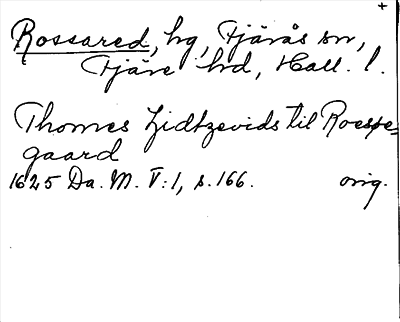 +
Rossared, hg, Fjärås sn,
Fjäre hd, Hall. l.
Thomes Lidtzevids til Roespe=
gaard
1625 Da. M. V:1, s. 166. orig.